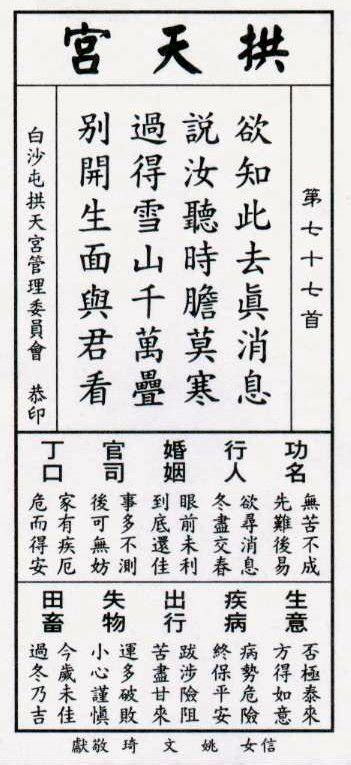 拱天宮
第七十七首
欲知此去眞消息
說汝聽時膽莫寒
過得雪山千萬疊
別開生面與君看
白沙屯拱天宮管理委員會 恭印
功名
無苦不成
先難後易
行人
欲尋消息
冬盡交春
婚姻
眼前未利
到底還佳
官司
事多不測
後可無妨
丁口
家有疾厄
危而得安
生意
否極泰來
方得如意
疾病
病勢危險
終保平安
出行
跋涉險阻
苦盡甘來
失物
運多破敗
小心謹慎
田畜
今歲未佳
過冬乃吉
信女 姚文琦 敬獻